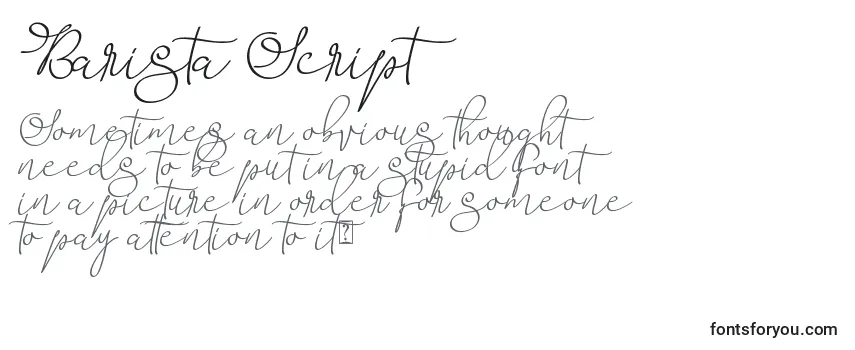 Barista Script
Sometimes an obvious thought
needs to be put in a stupid font
in a picture in order for someone
to pay attention to it
fontsforyou.com